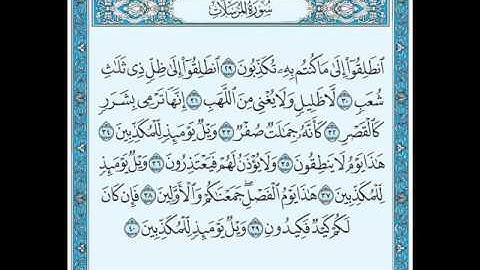 سُورَةُ المُرۡسَلَاتِ
ٱنطَلِقُوٓاْ إِلَىٰ مَا كُنتُم بِهِۦ تُكَذِّبُونَ ٢٩ ٱنطَلِقُوٓاْ إِلَىٰ ظِلّٖ ذِي ثَلَٰثِ
شُعَبٖ ٣٠ لَّا ظَلِيلٖ وَلَا يُغۡنِي مِنَ ٱللَّهَبِ ٣١ إِنَّهَا تَرۡمِي بِشَرَرٖ
كَٱلۡقَصۡرِ ٣٢ كَأَنَّهُۥ جِمَٰلَتٞ صُفۡرٞ ٣٣ وَيۡلٞ يَوۡمَئِذٖ لِّلۡمُكَذِّبِينَ ٣٤
هَٰذَا يَوۡمُ لَا يَنطِقُونَ ٣٥ وَلَا يُؤۡذَنُ لَهُمۡ فَيَعۡتَذِرُونَ ٣٦ وَيۡلٞ يَوۡمَئِذٖ
لِّلۡمُكَذِّبِينَ ٣٧ هَٰذَا يَوۡمُ ٱلۡفَصۡلِۖ جَمَعۡنَٰكُمۡ وَٱلۡأَوَّلِينَ ٣٨ فَإِن كَانَ
لَكُمۡ كَيۡدٞ فَكِيدُونِ ٣٩ وَيۡلٞ يَوۡمَئِذٖ لِّلۡمُكَذِّبِينَ ٤٠